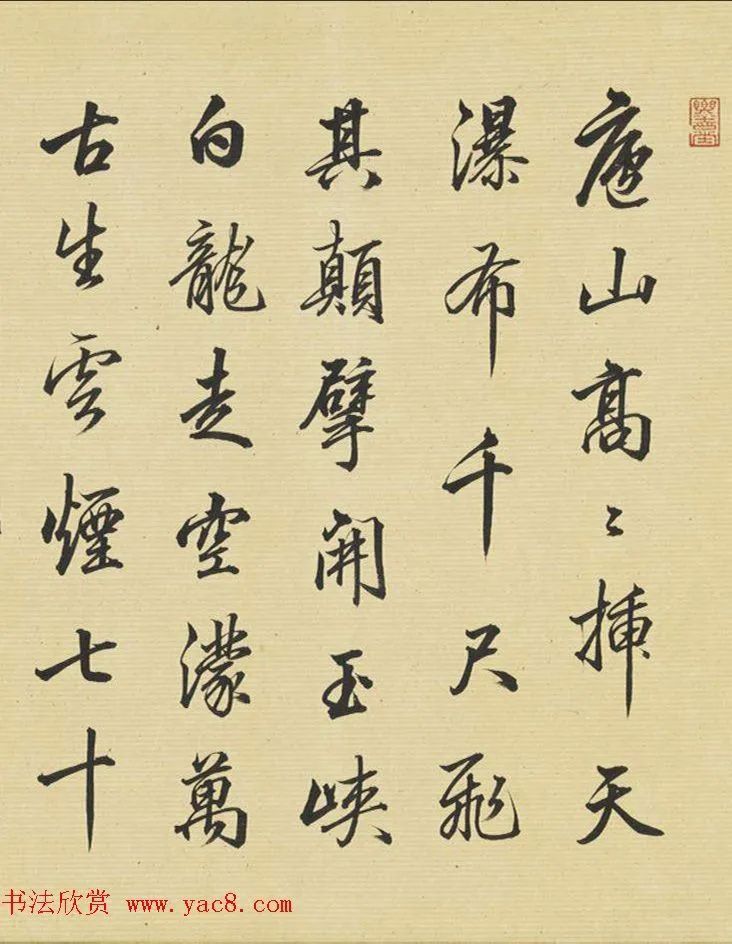 庐山高〻插天
瀑布千尺飛
其顛擘開玉峽
白龍走空濛萬
古生雲煙七十
书法欣赏 www.yac8.com